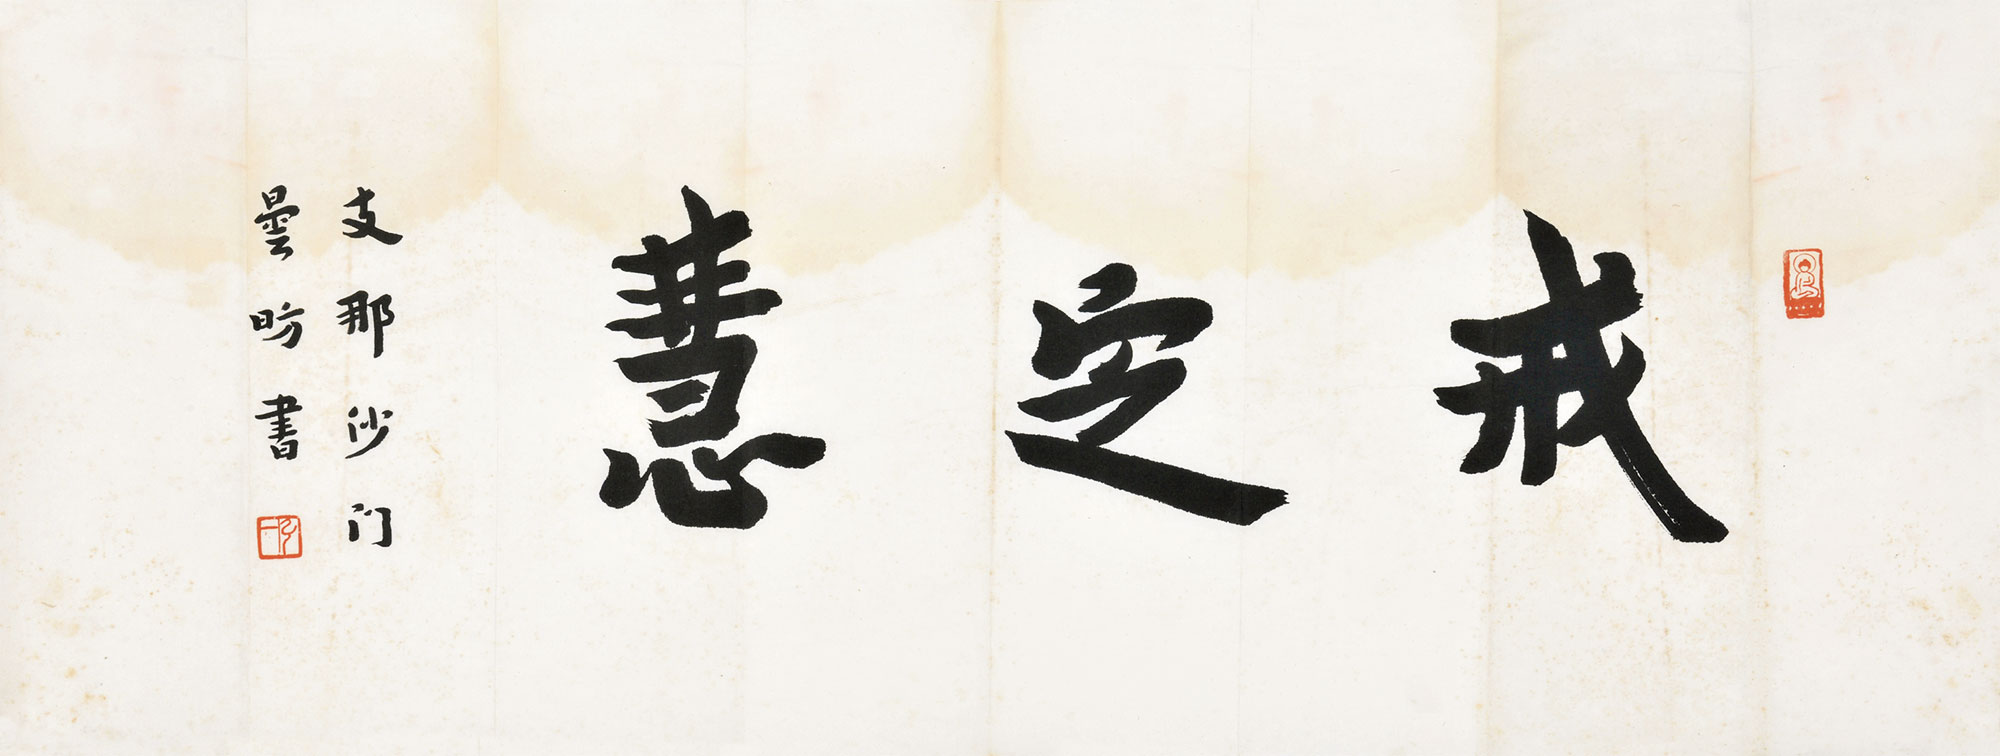 戒定慧
支那沙门
曇昉書